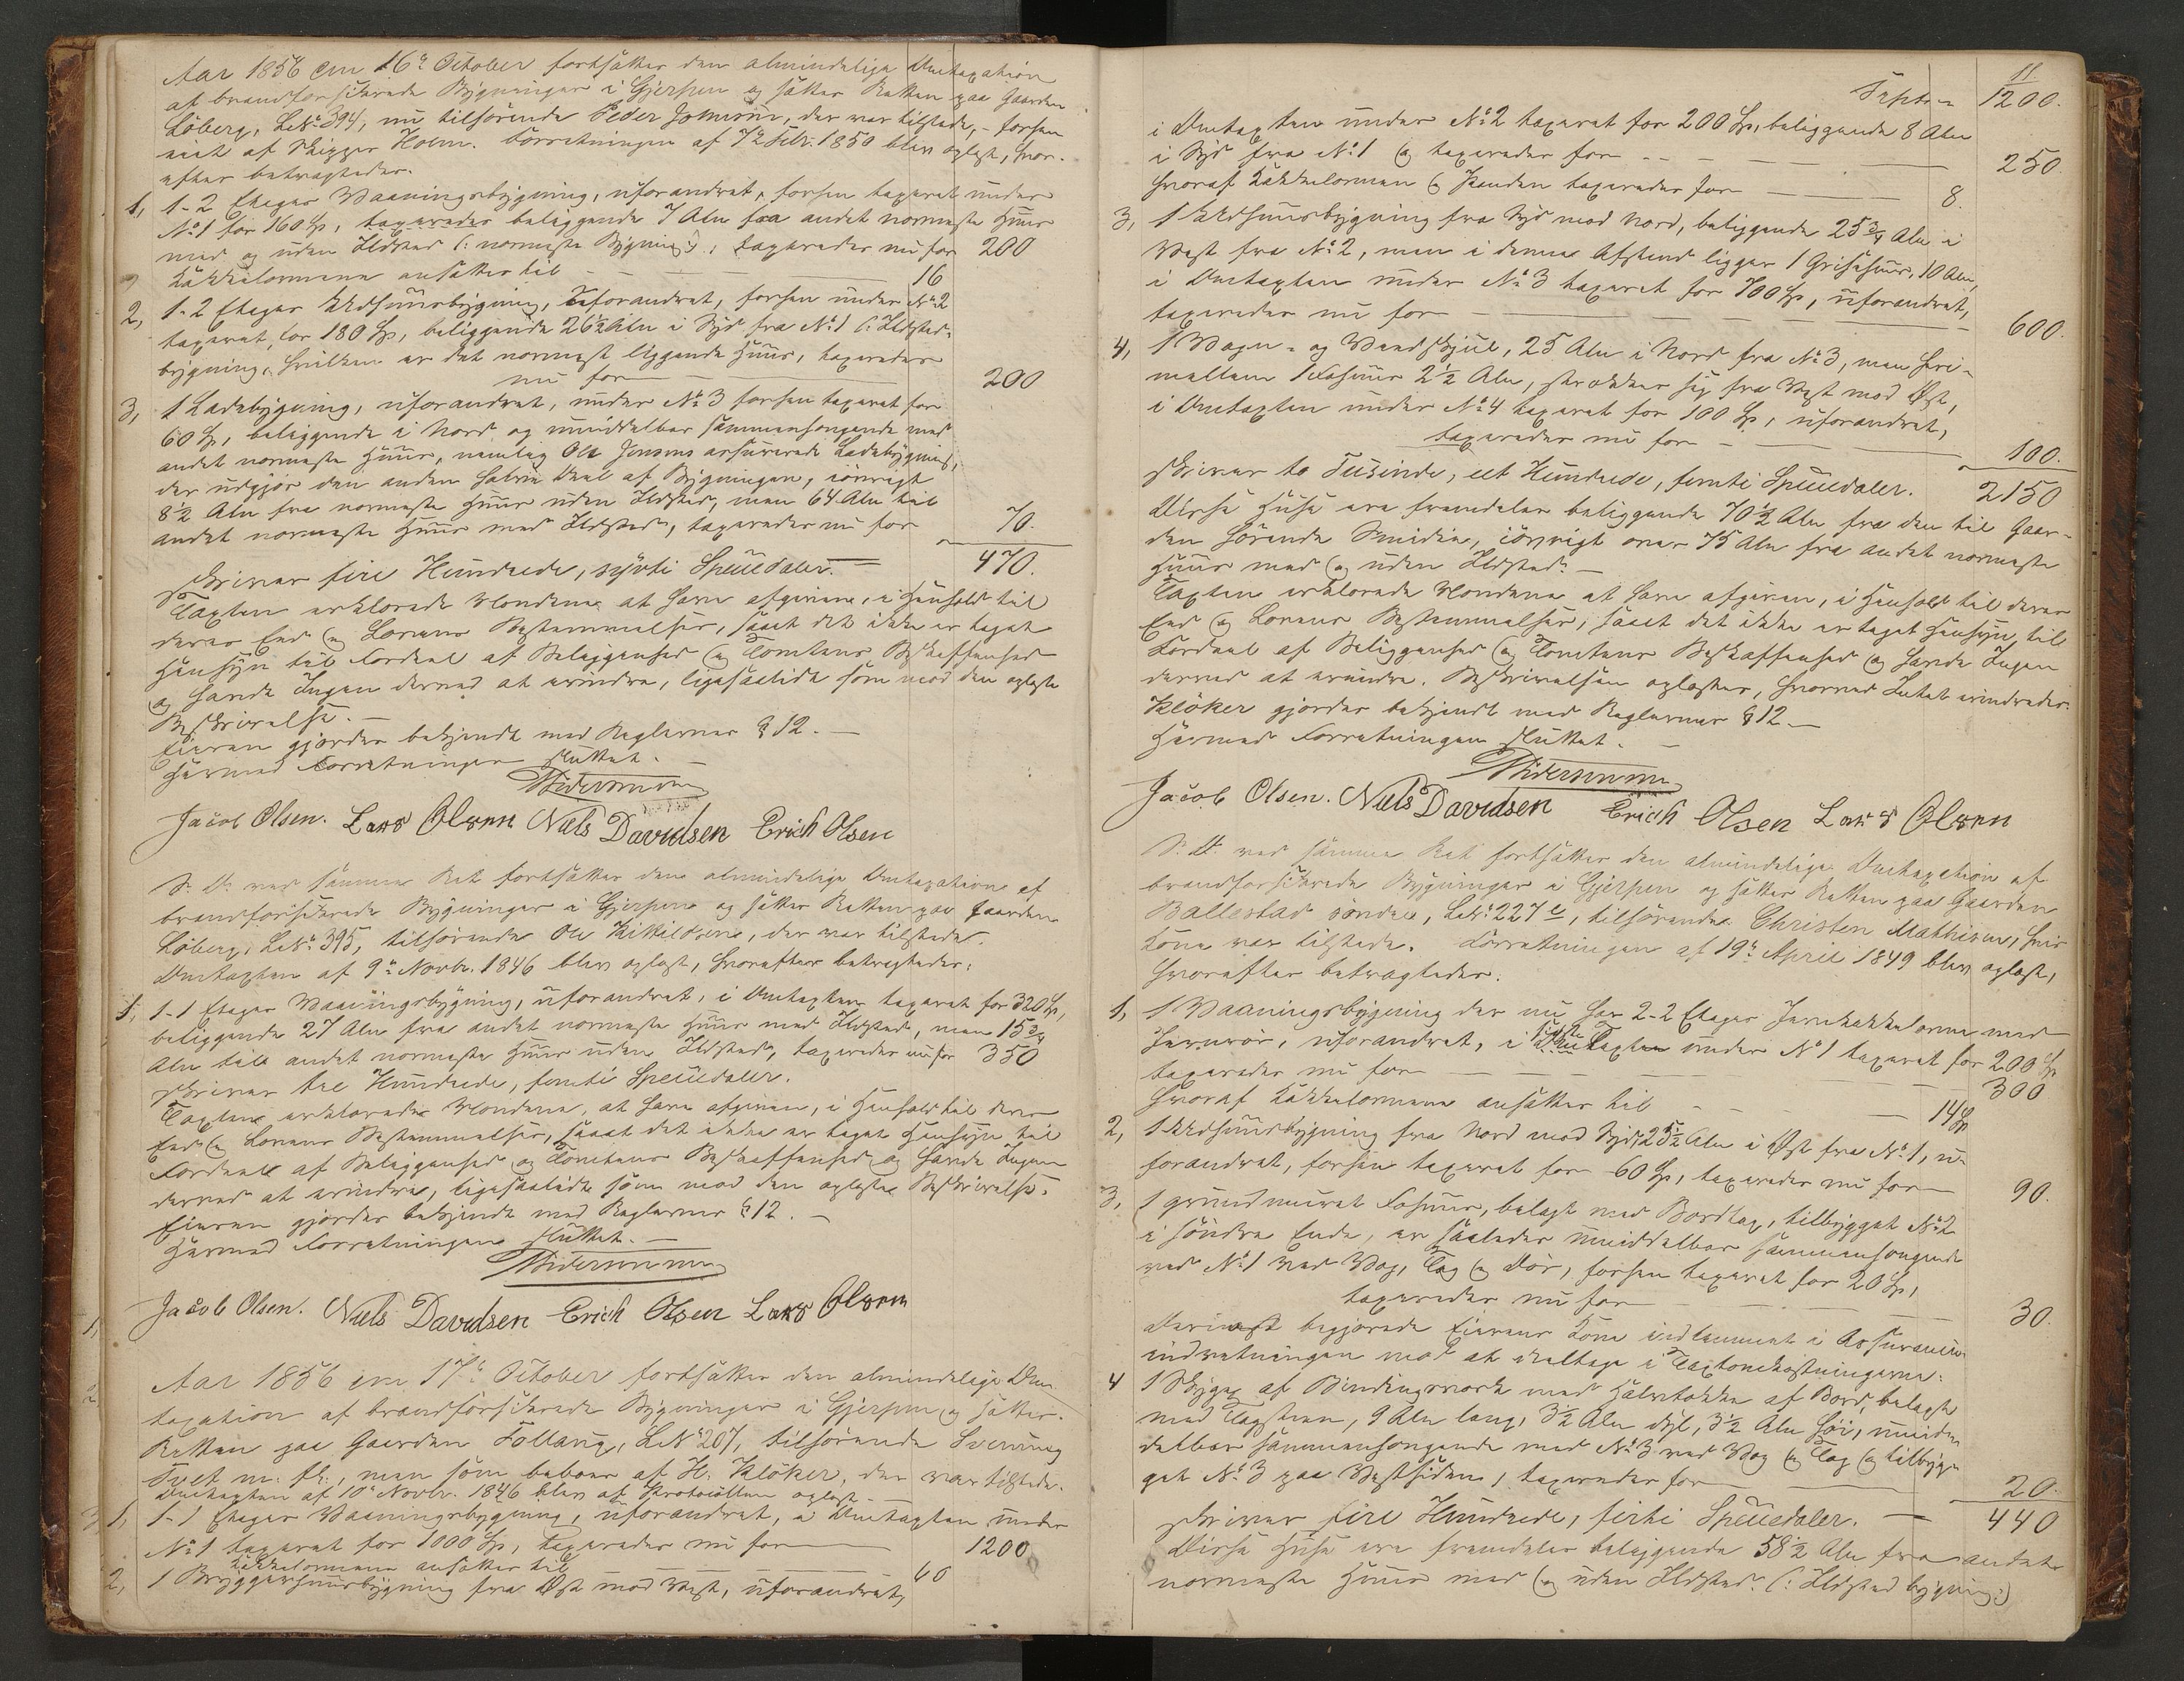 Aar 1856 den 16de October fortsattes den almindelige Omtaxation
af brandforsikrede Bygninger i Gjerpen og sattes Retten paa Gaarden
Løberg, L. No 394, nu tilhørende Peder Johnsen, der var tilstede, - forhen
eiet af Skipper Holm. Forretningen af 7de Febr. 1850 blev oplæst, hvor-
efter betragtedes.
1, 1-2 Etages Vaaningsbygning, uforandret, forhen taxeret under
No 1 for 160 Sp, taxeredes beliggende 7 Alen fra andet nærmeste Huus
med og uden Ildsted (: nærmeste Bygning :), taxeredes nu for 200
Kakkelovnene ansattes til - 16
2, 1-2 Etages Udhuusbygning, uforandret, forhen under No 2
taxeret for 180 Sp, beliggende 26½ Alen i Syd fra No 1 (: Ildsted-
bygning, hvilken er det nærmest liggende Huus, taxeredes
nu for 200
3, 1 Ladebygning, uforandret, under No 3 forhen taxeret for
60 Sp, beliggende i Nord og umiddelbar sammenhængende med
andet nærmeste Huus, nemlig Ole Jensens assurerede Ladebygning,
der udgjør den anden halve Deel af Bygningen, iøvrigt
8½ Alen fra nærmeste Huus uden Ildsted, men 64 Alen til
andet nærmeste Huus med Ildsted, taxeredes nu for 70.
470.
skriver fire Hundrede, sytti Speciedaler.
Taxten erklærede Mændene at have afgivne, i Henhold til
deres Eed og Lovens Bestemmelser, saaat det ikke er taget
Hensyn til Fordeel af Beliggenhed og Tomtens Beskaffenhed
og havde Ingen derved at erindre, ligesaalidt som mod den oplæste
Beskrivelse. -
Eieren gjordes bekjendt med Reglernes § 12. -
Hermed Forretningen sluttet. -
Jacob Olsen. Lars Olsen Niels Davidsen Erich Olsen
S. D. ved samme Ret fortsattes den almindelige Omtaxation af
brandforsikrede Bygninger i Gjerpen og sattes Retten paa Gaarden
Løberg, L. No 395, tilhørende Ole Kittilsen, der var tilstede.
Omtaxten af 9de Novbr. 1846 blev oplæst, hvorefter betragtedes:
1, 1-1 Etages Vaaningsbygning, uforandret, i Omtaxten taxeret for 320 Sp,
beliggende 27 Alen fra andet nærmeste Huus med Ildsted, men 15¾
Alen til andet nærmeste Huus uden Ildsted, taxeredes nu for 350
skriver tre Hundrede, femti Speciedaler.
Taxten erklærede Mændene, at have afgiven, i Henhold til deres
Eed og Lovens Bestemmelser, saaat det ikke er taget Hensyn til
Fordeel af Beliggenhed og Tomtens Beskaffenhed og havde Ingen
derved at erindre, ligesaalidt som mod den oplæste Beskrivelse.
Eieren gjordes bekjendt med Reglernes § 12. -
Hermed Forretningen sluttet. -
Jacob Olsen. Niels Davidsen Erich Olsen Lars Olsen
Aar 1856 den 17de October fortsattes den almindelige Om-
taxation af brandforsikrede Bygninger i Gjerpen og sattes
Retten paa Gaarden Follaug, L. No 207, tilhørende
Tvet m. fl., men som beboes af H. Kløker, der var tilstede.
Omtaxten af 10de Novbr. 1846 blev af Protocollen oplæst -
1, 1-1 Etages Vaaningsbygning, uforandret, i Omtaxten under
No 1 taxeret for 1000 Sp, taxeredes nu for 1200
Kakkelovnene ansattes til 60
2, 1 Bryggerhuusbygning fra Øst mod Vest, uforandret,
11
1200.
i Omtaxten under No 2 taxeret for 200 Sp, beliggende 8 Alen
i Syd fra No 1 og taxeredes for - 250.
hvoraf Kakkelovnen og Panden taxeredes for 8.
3, 1 Udhuusbygning fra Syd mod Nord, beliggende 25¾ Alen i
Vest fra No 2, men i dennes Afstand ligger 1 Grisehuus, 10 Alen,
i Omtaxten under No 3 taxeret for 700 Sp, uforandret,
taxeredes nu for - 600.
4, 1 Vogn- og Vedskjul, 25 Alen i Nord fra No 3, men heri-
mellem 1 Fæhuus 2½ Alen, strækker sig fra Vest mod Øst,
i Omtaxten under No 4 taxeret for 100 Sp, uforandret,
taxeredes nu for - 100.
skriver to Tusinde, eet Hundrede, femti Speciedaler. 2150
Disse Huse ere fremdeles beliggende 70½ Alen fra den til Gaar-
den hørende Smidie, iøvrigt over 75 Alen fra andet nærmeste
Huus med og uden Ildsted. -
Taxten erklærede Mændene at have afgiven, i Henhold til deres
Eed og Lovens Bestemmelser, saaat det ikke er taget Hensyn til
Fordeel af Beliggenhed og Tomtens Beskaffenhed og havde Ingen
derved at erindre. Beskrivelsen oplæstes, hvorved Intet erindredes.
Kløker gjordes bekjendt med Reglernes § 12. -
Hermed Forretningen sluttet. -
Jacob Olsen. Niels Davidsen Erich Olsen Lars Olsen
S. D. ved samme Ret fortsattes den almindelige Omtaxation af
brandforsikrede Bygninger i Gjerpen og sattes Retten paa Gaarden
Ballestad søndre, L. No 227 c, tilhørende Christen Mathisen, hvis
Kone var tilstede. Forretningen af 19de April 1849 blev oplæst,
hvorefter betragtedes:
1, 1 Vaaningsbygning der nu har 2-2 Etages Jernkakkelovne med
Jernrør, uforandret, i sidste Taxt under No 1 taxeret for 200 Sp
taxeredes nu for 300
hvoraf Kakkelovnene ansattes til - 14 Sp
2, 1 Udhuusbygning fra Nord mod Syd, 25½ Alen i Øst fra No 1, u-
forandret, forhen taxeret for 60 Sp, taxeredes nu for 90.
3, 1 grundmuret Fæhuus, belagt med Bordtag, tilbygget No 2
i søndre Ende, er saaledes umiddelbar sammenhængende
med No 1 ved Væg, Tag og Dør, forhen taxeret for 20 Sp,
taxeredes nu for - 30.
begjærede Eierens Kone indlemmet i Assurance-
indretningen mod at deeltage i Taxtomkostningerne:
4 1 Skygge af Bindingsværk med Halvtække af Bord, belagt
med Tagsteen, 9 Alen lang, 3½ Alen dyb, 3½ Alen høi, umid-
delbar sammenhængende med No 3 ved Væg og Tag og tilbyg-
get No 3 paa Vestsiden, taxeredes for 20.
skriver fire Hundrede, firti Speciedaler. - 440
Disse Huse ere fremdeles beliggende 58½ Alen fra andet
nærmeste Huus med og uden Ildsted (: Ildstedbygning :)